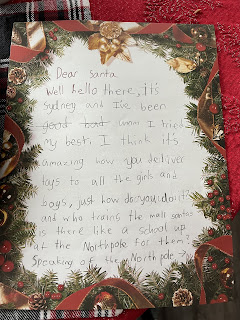 Dear Santa
Well hello there, it's
Sydney and I've been
good bad umm I tried
my best. I think it's
amazing how you deliver
toys to all the girls and
boys, just how do you do it?
and who trains the mall santas
is there like a school up
at the Northpole for them?
Speaking of the North pole ?